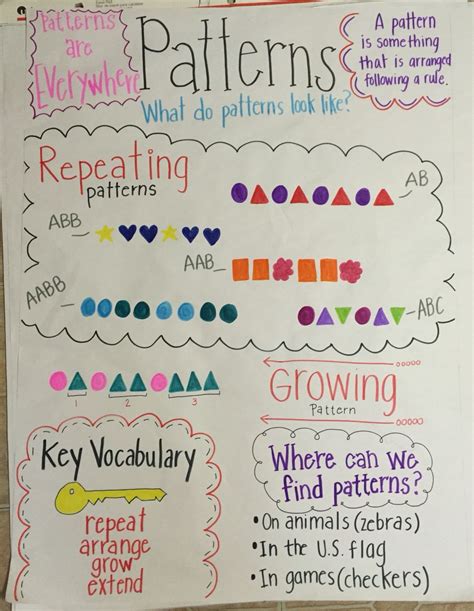 Patterns
are
Everywhere
Patterns
What do patterns look like?
A pattern
is something
that is arranged
following a rule.
Repeating
patterns
AB
ABB
AAB
AABB
ABC
1 2 3
Growing
Pattern
Key Vocabulary
repeat
arrange
grow
extend
Where can we
find patterns?
• On animals (zebras)
• In the U.S. flag
• In games (checkers)